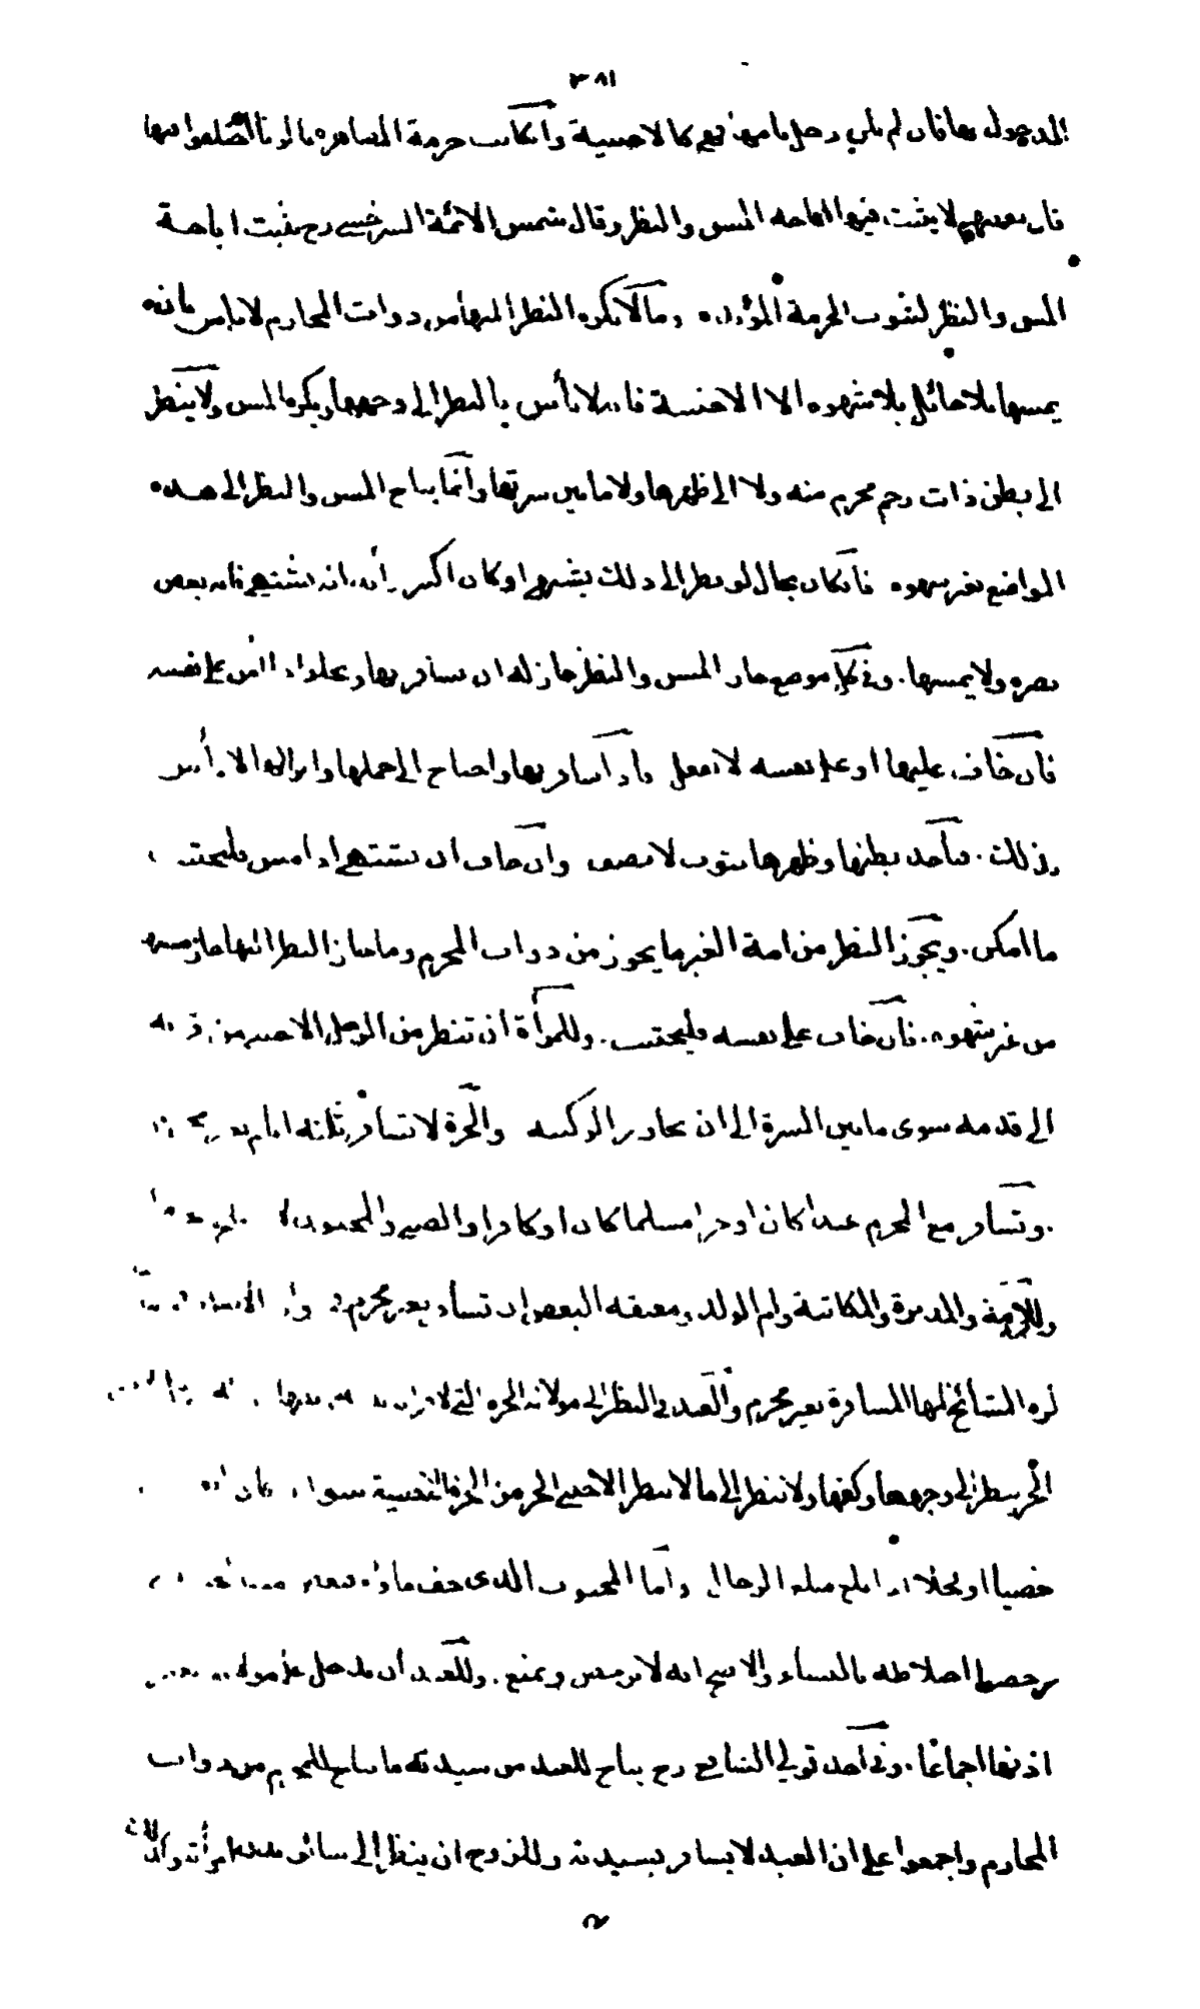 ٣٨١
المدخول بها فان لم يكن دخل بامها فهي كالاجنبية وان كانت حرمة المصاهرة بالزنا اختلفوا فيها
قال بعضهم لا يثبت فيها اباحة المس والنظر وقال شمس الائمة السرخسي رح يثبت اباحة
المس والنظر لثبوت الحرمة المؤبدة وما لا يكره النظر اليها من ذوات المحارم لا بأس بانه
يمسها بلا حائل بلا شهوة الا الاجنبية فانه لا بأس بالنظر الى وجهها ويكره المس ولا ينظر
الى بطن ذات رحم محرم منه ولا الى ظهرها ولا ما بين سرتها وانما يباح المس والنظر الى هذه
المواضع بغير شهوة فان كان بحال لو نظر الى ذلك يشتهي او كان اكبر رأيه انه يشتهي فانه بغض
بصره ولا يمسها . وفي كل موضع جاز المس والنظر جاز له ان يسافر بها ويخلو اذا امن على نفسه
فان خاف عليها او على نفسه لا يفعل واذا سافر بها واحتاج الى حملها وانزالها لا بأس
بذلك . فيأخذ بطنها وظهرها بثوب لا يصف وان خاف ان يشتهي اذا مس فليجتنب
ما امكن . ويجوز النظر من امة الغير ما يجوز من ذوات المحرم وما جاز النظر اليها جاز مسه
من غير شهوة . فان خاف على نفسه فليجتنب . وللمرأة ان تنظر من الرجل الاجنبي من قرنه
الى قدمه سوى ما بين السرة الى ان يجاوز الركبة والحرة لا تسافر ثلاثة ايام بغير محرم
. وتسافر مع المحرم عبدا كان او حرا مسلما كان او كافرا والصبي والمجنون
وللامة والمدبرة والمكاتبة وام الولد ومعتقة البعض ان تسافر بغير محرم
كره المشائخ لها المسافرة بغير محرم والعبد في النظر الى مولاته الحرة التي لا قرابة
الحر ينظر الى وجهها وكفيها ولا ينظر الى ما لا ينظر الاجنبي الحر من الحرة الاجنبية سواء كان
خصيا او فحلا اذا بلغ مبلغ الرجال واما المجبوب الذي جف ماؤه فبعض
رخصوا اختلاطه بالنساء والاصح انه لا يرخص ويمنع . وللعبد ان يدخل على مولاته بغير
اذنها اجماعا . وفي احد قولي الشافعي رح يباح للعبد من سيدته ما يباح للمحرم من ذوات
المحارم واجمعوا على ان العبد لا يسافر بسيدته وللزوج ان ينظر الى سائر بدن امرأته وكذلك